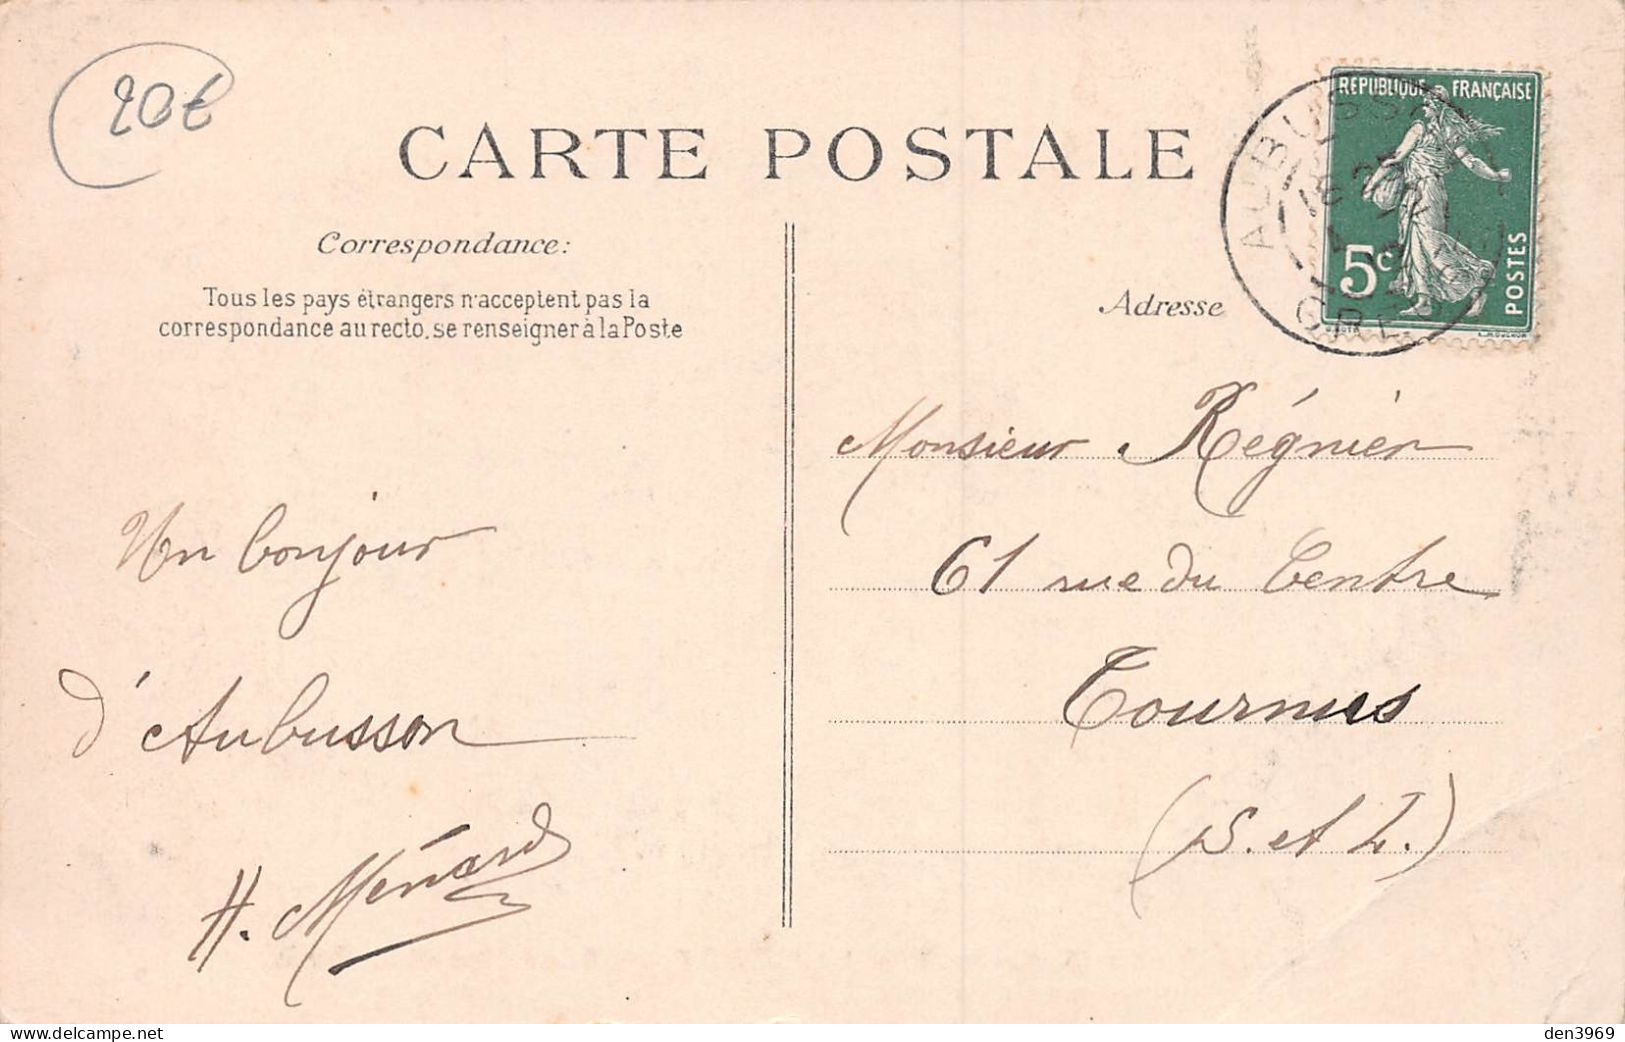 20€
CARTE POSTALE
RÉPUBLIQUE FRANÇAISE
5c
POSTES
AUBUSS
CRE
Correspondance:
Tous les pays étrangers n'acceptent pas la
correspondance au recto, se renseigner à la Poste
Adresse
Un bonjour
d'Aubusson
H. Ménard
Monsieur Régnier
61 rue du Centre
Tournus
(S. et L.)
www.delcampe.net
den3969